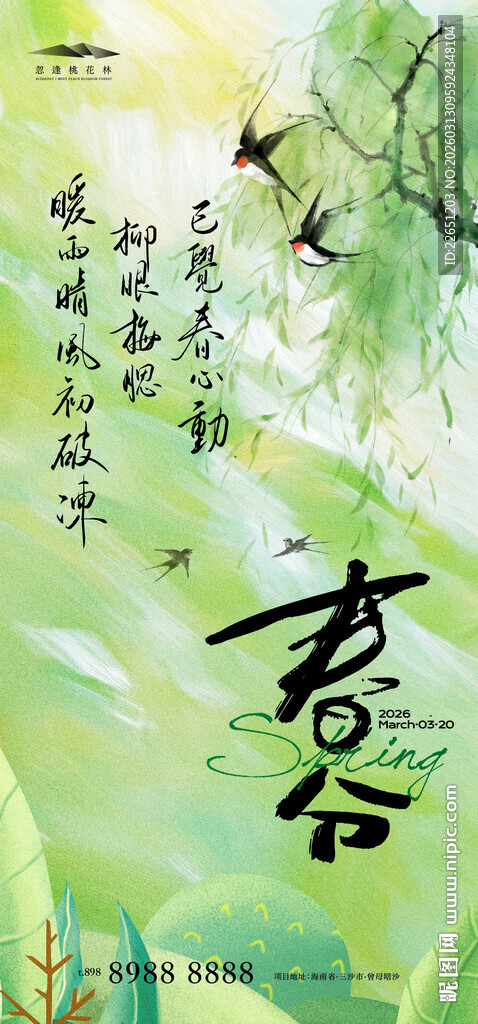 忽逢桃花林
SUDDENLY I MEET PEACH BLOSSOM FOREST
暖雨晴风初破冻
柳眼梅腮
已觉春心動
春分
Spring
2026
March·03·20
t.898 8988 8888
项目地址:海南省·三沙市·曾母暗沙
ID:22651203 NO:20260313095924348104
昵图网 www.nipic.com